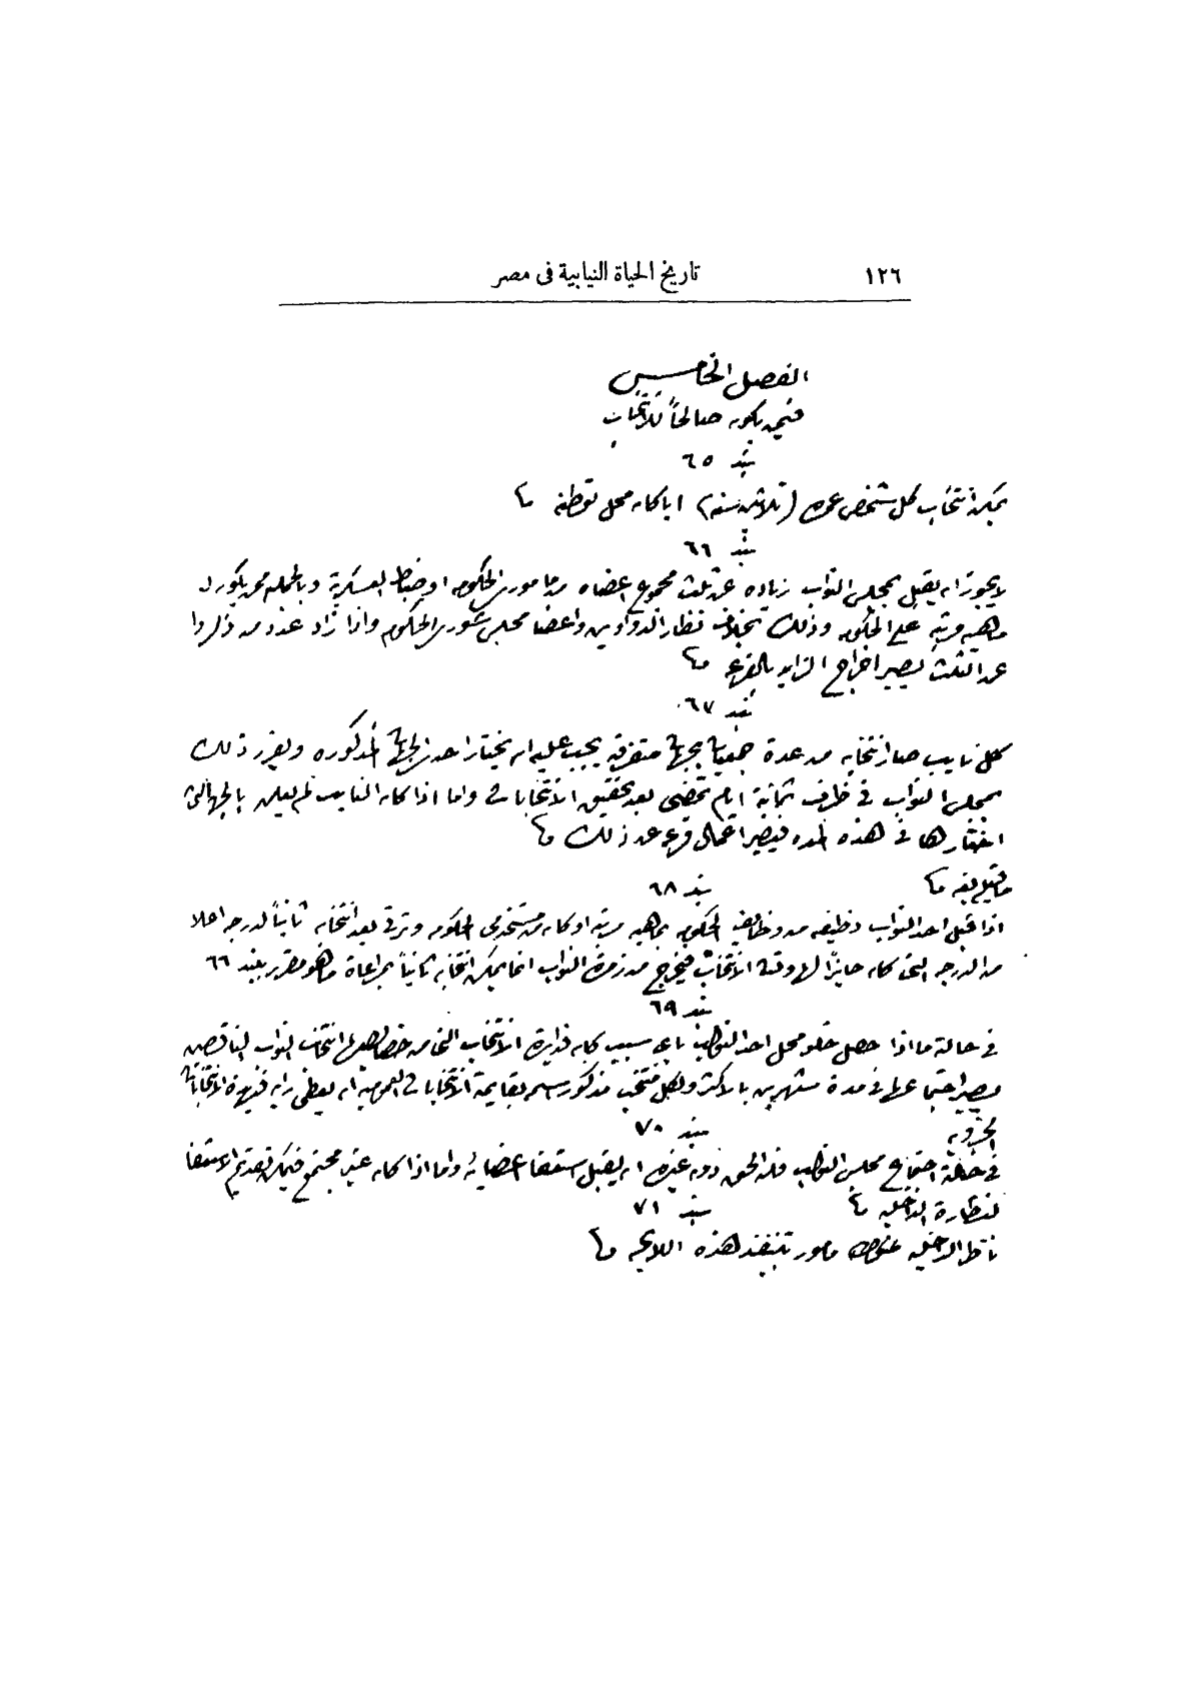 ١٢٦
تاريخ الحياة النيابية فى مصر
الفصل الخامس
فيمن يكون صالحاً للانتخاب
بند ٦٥
يمكن انتخاب كل شخص عمره (ثلاثين سنه) ايا كان محل توطنه
بند ٦٦
لا يجوز ان يقبل بمجلس النواب زياده عن ثلث مجموع اعضاه من مامورين الحكومه او ضباط العسكرية وبالجمله ممن يكون له
ماهيه مرتبه على الحكومه وذلك بخلاف نظار الدواوين واعضا مجلس شورى الحكومه واذا زاد عدد من ذكروا
عن الثلث يصير اخراج الزايد بالقرعه
بند ٦٧
كل نايب صار انتخابه من عدة جمعيات بجهات متفرقه يجب عليه ان يختار احد الجهات المذكوره ويقرر ذلك
بمجلس النواب فى ظرف ثمانية ايام تمضى بعد تحقيق الانتخابات واما اذا كان النايب لم يعلن بالجهه التى
اختارها فى هذه المده فيصير اعمال قرعه عن ذلك
بند ٦٨
اذا قبل احد النواب وظيفه من وظائف الحكومه بماهيه مرتبه او كان من مستخدمى الحكومه وترقى بعد انتخابه ثانياً لدرجه اعلا
من الدرجه التى كان حايزاً لها وقت الانتخاب فيخرج من زمرة النواب انما يمكن انتخابه ثانياً بمراعاة ما هو مقرر ببند ٦٦
بند ٦٩
فى حالة ما اذا حصل خلو محل احد النواب باى سبب كان فدايرة الانتخاب التى من خصايصها انتخاب النواب الناقصين
يصير اجتماعها فى مدة شهرين بالاكثر ولكل منتخب مذكور اسمه بقايمة الانتخابات العموميه ان يعطى رايه فى هذه الانتخابات
الجزويه
بند ٧٠
فى حالة اجتماع مجلس النواب فله الحق دون غيره ان يقبل استعفا اعضائه واما اذا كان غير مجتمع فيمكن تقديم الاستعفا
لنظارة الداخليه
بند ٧١
ناظر الداخليه مامور بتنفيذ هذه اللايحه